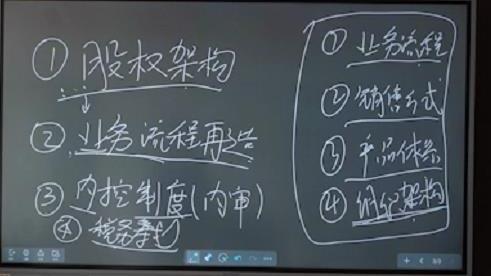 ① 股权架构
② 业务流程再造
③ 内控制度(内审)
④ 税务
① 业务流程
② 销售方式
③ 产品体系
④ 组织架构